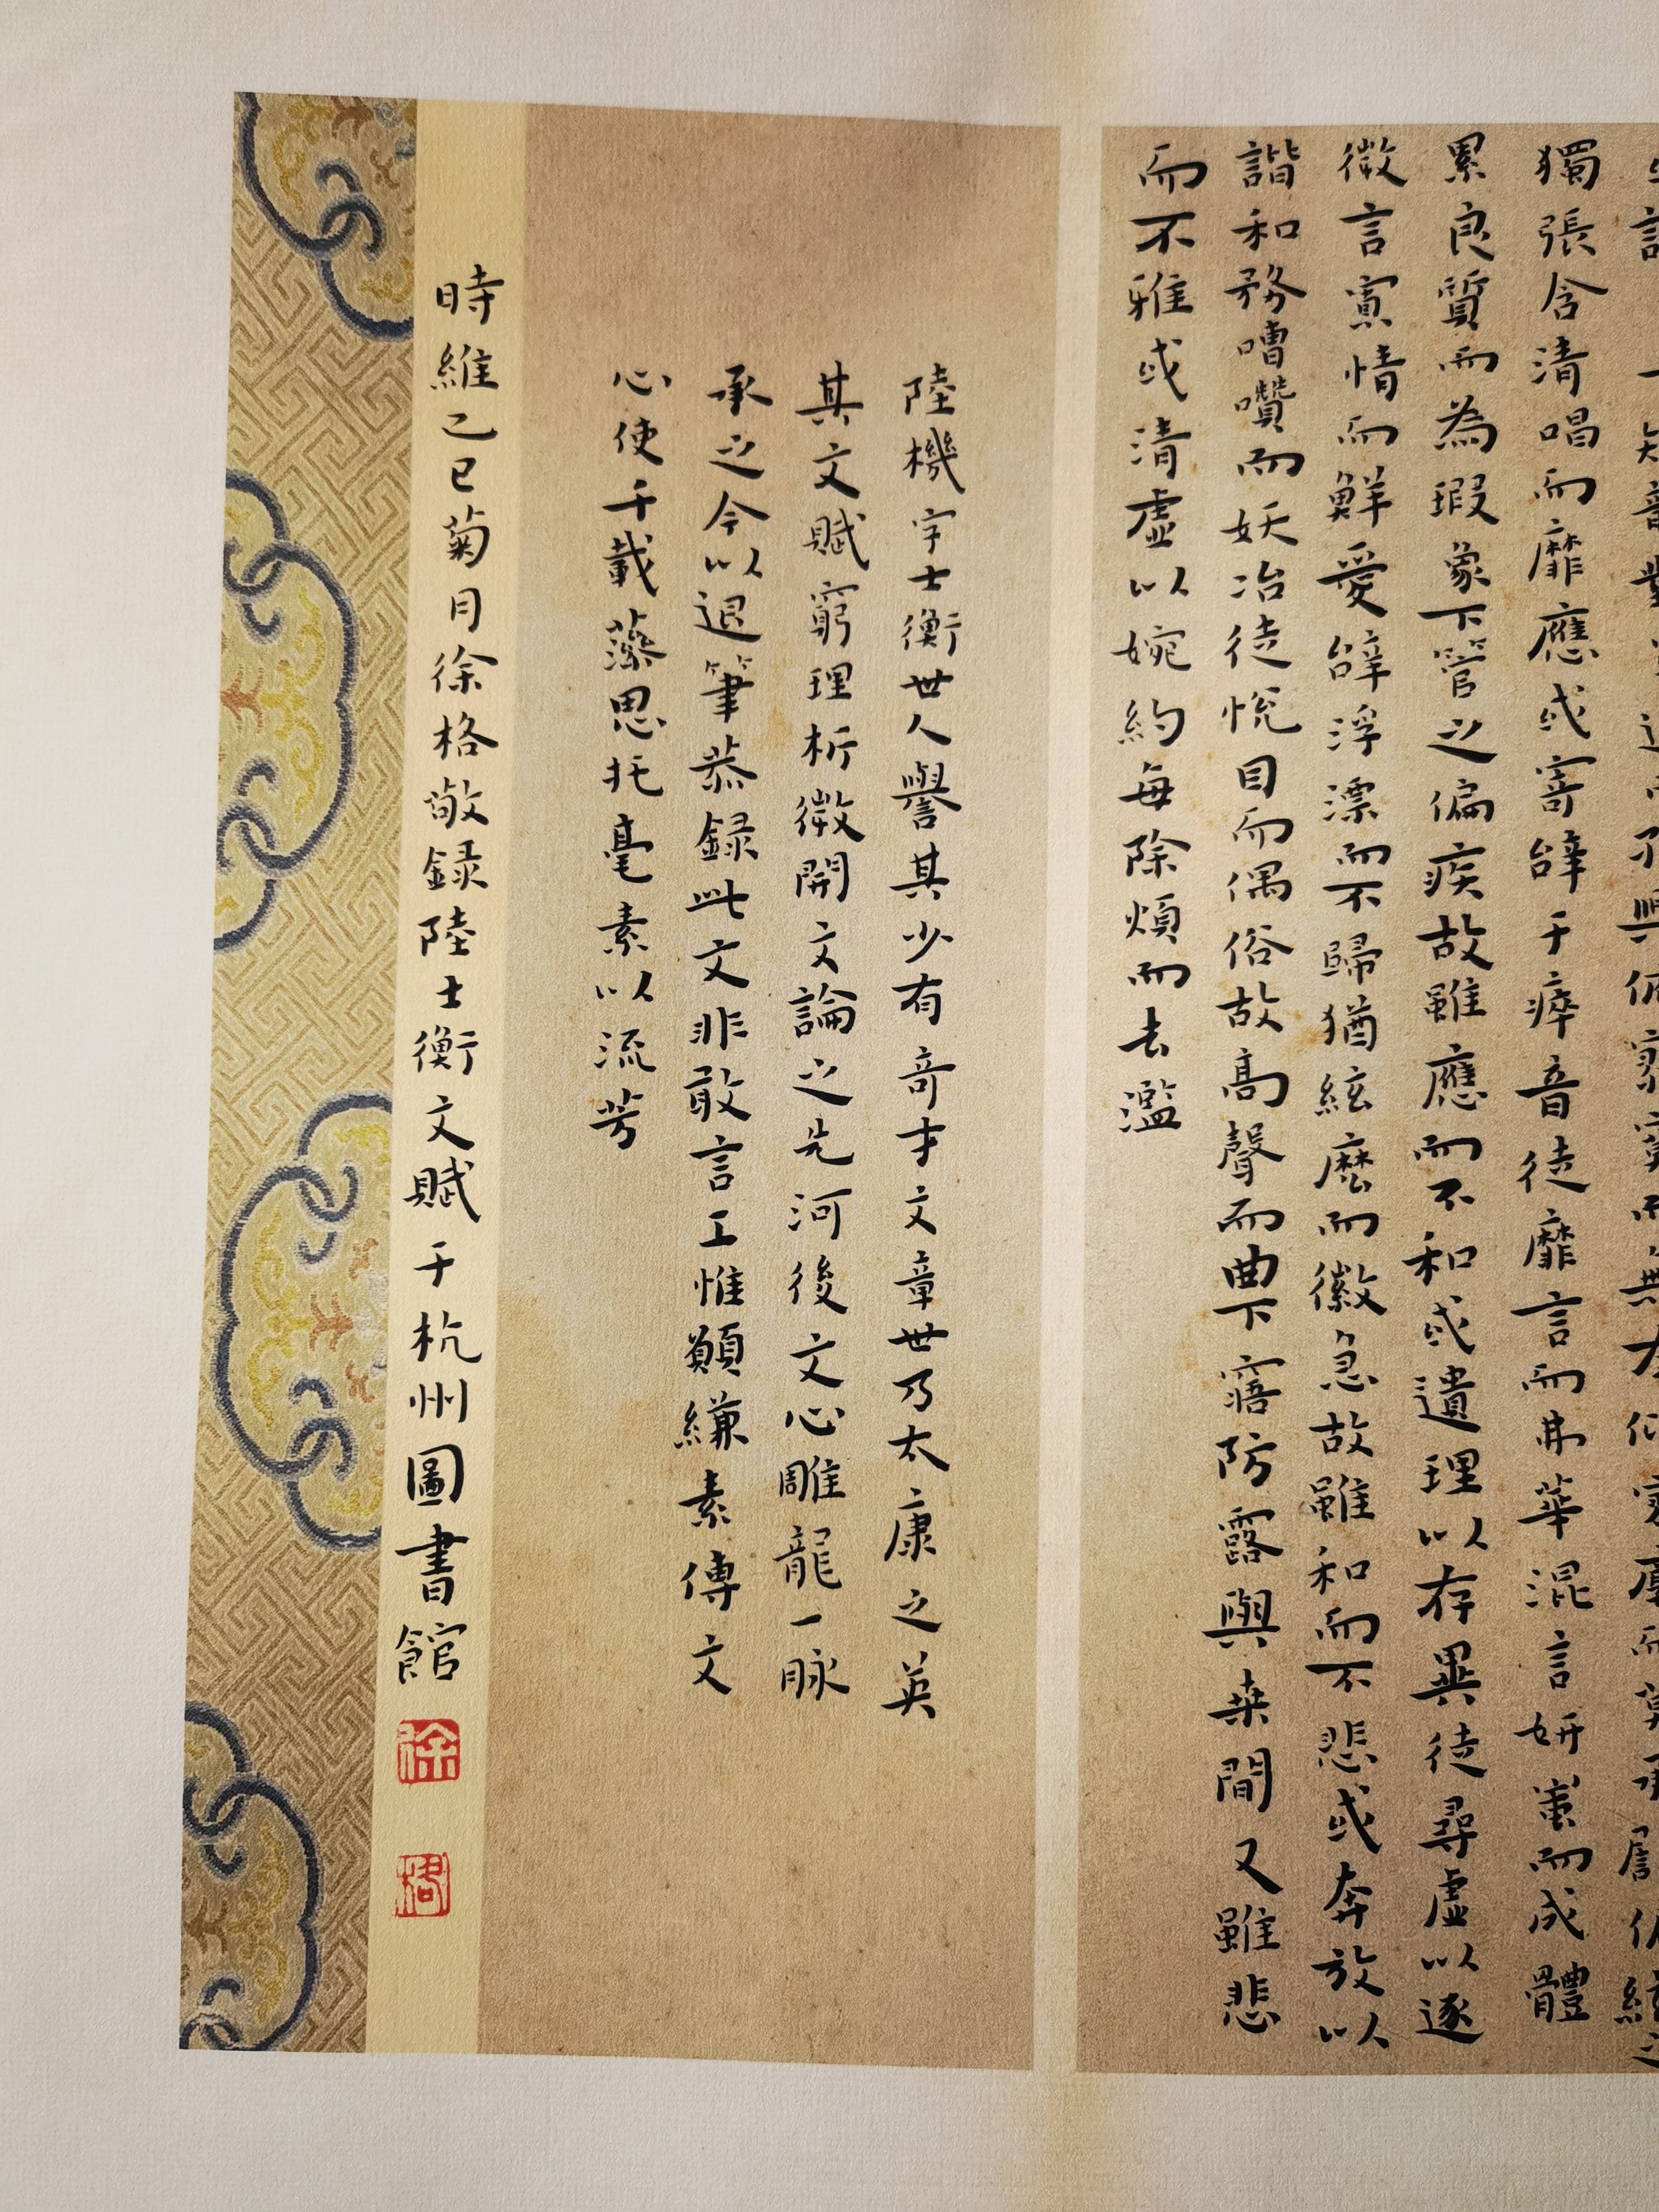 獨張含清唱而靡應或寄辭于瘁音徒靡言而弗華混言妍蚩而成體
累良質而為瑕象下管之偏疾故雖應而不和或遺理以存異徒尋虛以逐
微言寡情而鮮愛辭浮漂而不歸猶絃麽而徽急故雖和而不悲或奔放以
諧和務嘈囋而妖冶徒悅目而偶俗故高聲而曲下寤防露與桒間又雖悲
而不雅或清虛以婉約每除煩而去濫
陸機字士衡世人譽其少有奇才文章世乃太康之英
其文賦窮理析微開文論之先河後文心雕龍一脉
承之今以退筆恭録此文非敢言工惟願縑素傳文
心使千載藻思托毫素以流芳
時維乙巳菊月徐格敬録陸士衡文賦于杭州圖書館
徐
格